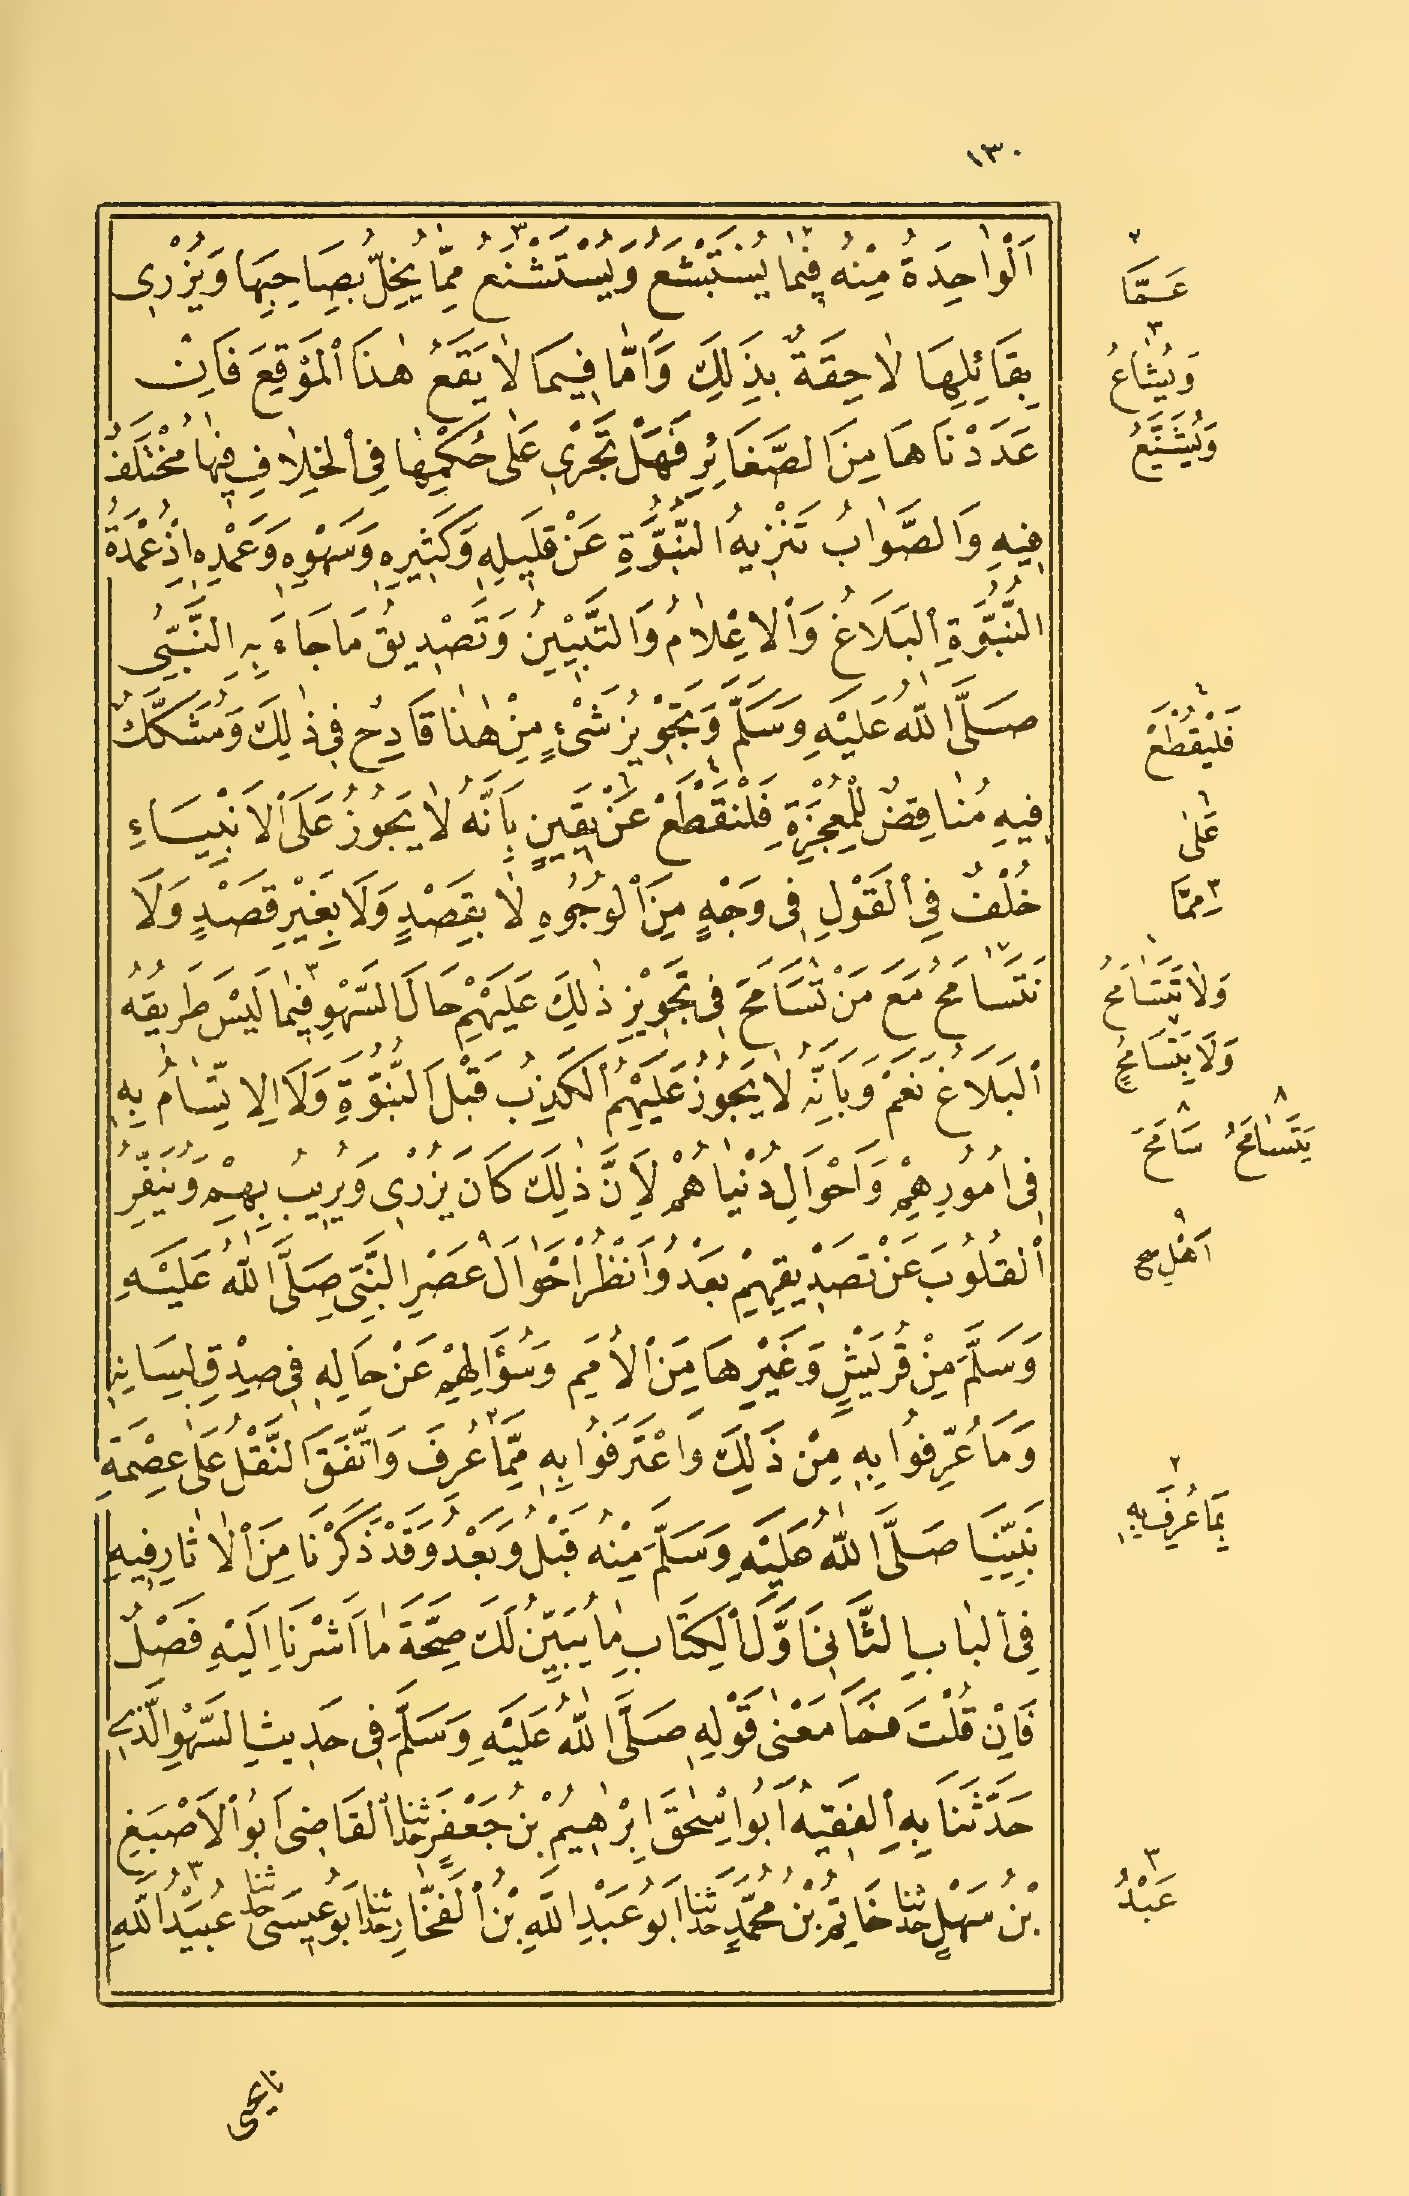 ١٣٠
اَلْوَاحِدَةُ مِنْهُ فِيمَا يُسْتَبْشَعُ وَيُسْتَشْنَعُ مِمَّا يُخِلُّ بِصَاحِبِهَا وَيُزْرِى
بِقَائِلِهَا لَاحِقَةٌ بِذَلِكَ وَاَمَّا فِيمَا لَا يَقَعُ هٰذَا الْمَوْقِعَ فَاِنْ
عَدَدْنَاهَا مِنَ الصَّغَائِرِ فَهَلْ تَجْرِى عَلٰى حُكْمِهَا فِى الْخِلَافِ فِيهَا مُخْتَلَفٌ
فِيهِ وَالصَّوَابُ تَنْزِيهُ النُّبُوَّةِ عَنْ قَلِيلِهِ وَكَثِيرِهِ وَسَهْوِهِ وَعَمْدِهِ اِذْ عُمْدَةُ
النُّبُوَّةِ الْبَلَاغُ وَالْاِعْلَامُ وَالتَّبْيِيْنُ وَتَصْدِيقُ مَا جَاءَ بِهِ النَّبِيُّ
صَلَّى اللّٰهُ عَلَيْهِ وَسَلَّمَ وَتَجْوِيزُ شَىْءٍ مِنْ هٰذَا قَادِحٌ فِى ذٰلِكَ وَمُشَكِّكٌ
فِيهِ مُنَاقِضٌ لِلْمُعْجِزَةِ فَلْنَقْطَعْ عَنْ يَقِينٍ بِاَنَّهُ لَا يَجُوزُ عَلَى الْاَنْبِيَاءِ
خُلْفٌ فِى الْقَوْلِ فِى وَجْهٍ مِنَ الْوُجُوهِ لَا بِقَصْدٍ وَلَا بِغَيْرِ قَصْدٍ وَلَا
نَتَسَامَحُ مَعَ مَنْ تَسَامَحَ فِى تَجْوِيزِ ذٰلِكَ عَلَيْهِمْ حَالَ السَّهْوِ فِيمَا لَيْسَ طَرِيقُهُ
الْبَلَاغَ نَعَمْ وَبِاَنَّهُ لَا يَجُوزُ عَلَيْهِمُ الْكَذِبُ قَبْلَ النُّبُوَّةِ وَلَا الِاتِّسَامُ بِهِ
فِى اُمُورِهِمْ وَاَحْوَالِ دُنْيَاهُمْ لِاَنَّ ذٰلِكَ كَانَ يُزْرِى وَيُرِيبُ بِهِمْ وَيُنَفِّرُ
الْقُلُوبَ عَنْ تَصْدِيقِهِمْ بَعْدُ وَانْظُرْ اَحْوَالَ عَصْرِ النَّبِىِّ صَلَّى اللّٰهُ عَلَيْهِ
وَسَلَّمَ مِنْ قُرَيْشٍ وَغَيْرِهَا مِنَ الْاُمَمِ وَسُؤَالِهِمْ عَنْ حَالِهِ فِى صِدْقِ لِسَانِهِ
وَمَا عُرِّفُوا بِهِ مِنْ ذَلِكَ وَاعْتَرَفُوا بِهِ مِمَّا عُرِفَ وَاتَّفَقَ النَّقْلُ عَلَى عِصْمَةِ
نَبِيِّنَا صَلَّى اللّٰهُ عَلَيْهِ وَسَلَّمَ مِنْهُ قَبْلُ وَبَعْدُ وَقَدْ ذَكَرْنَا مِنَ الْاٰثَارِ فِيهِ
فِى الْبَابِ الثَّانِى اَوَّلَ الْكِتَابِ مَا يُبَيِّنُ لَكَ صِحَّةَ مَا اَشَرْنَا اِلَيْهِ فَصْلٌ
فَاِنْ قُلْتَ فَمَا مَعْنٰى قَوْلِهِ صَلَّى اللّٰهُ عَلَيْهِ وَسَلَّمَ فِى حَدِيثِ السَّهْوِ الَّذِى
حَدَّثَنَا بِهِ الْفَقِيهُ اَبُو اِسْحٰقَ اِبْرٰهِيمُ بْنُ جَعْفَرٍ حدثنا الْقَاضِى اَبُو الْاَصْبَغِ
بْنُ سَهْلٍ حدثنا حَاتِمُ بْنُ مُحَمَّدٍ حدثنا اَبُو عَبْدِ اللّٰهِ بْنُ الْفَخَّارِ حدثنا اَبُو عِيسَى حدثنا عُبَيْدُ اللّٰهِ
٢
عَمَّا
٣
وَيُشَاعُ
وَيُشَنَّعُ
٤
فَلْيُقْطَعْ
٦
عَلَى
٣ مِمَّا
١
وَلَا تَتَسَامَحُ
٧
وَلَا يُتَسَامَحُ
٨ ٨
يَتَسَامَحُ سَامَحَ
٩
اَهْلِ صح
٢
بِمَا عُرِفَ بِهِ
٣
عَبْدُ
نا يحيى